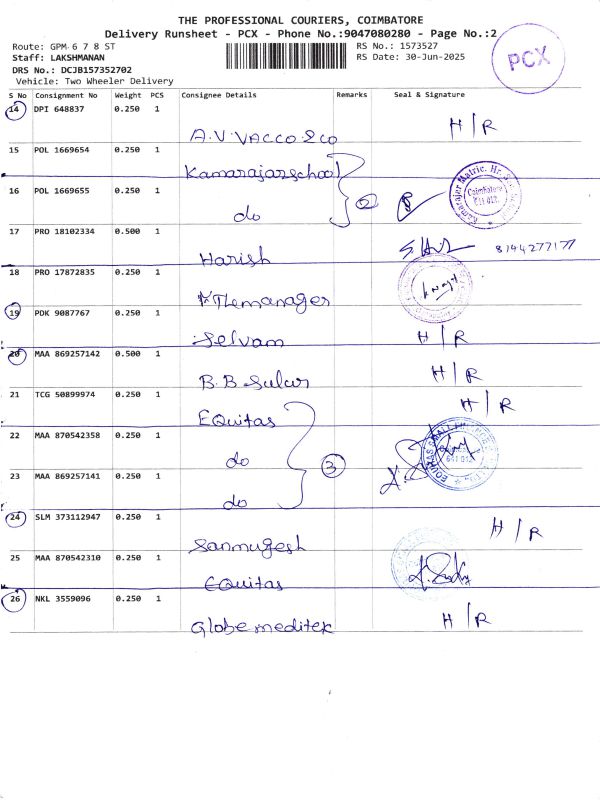 THE PROFESSIONAL COURIERS, COIMBATORE
Delivery Runsheet - PCX - Phone No.:9047080280 - Page No.:2
Route: GPM 6 7 8 ST
RS No.: 1573527
Staff: LAKSHMANAN
RS Date: 30-Jun-2025
DRS No.: DCJB157352702
Vehicle: Two Wheeler Delivery
PCX
S No Consignment No Weight PCS Consignee Details Remarks Seal & Signature
14 DPI 648837 0.250 1
A.V. VACCO & CO H/R
15 POL 1669654 0.250 1
Kamarajarschool
16 POL 1669655 0.250 1
do 2
17 PRO 18102334 0.500 1
Harish 8144277177
18 PRO 17872835 0.250 1
Themanager
19 PDK 9087767 0.250 1
Selvam H/R
20 MAA 869257142 0.500 1
B.B Sulur H/R
21 TCG 50899974 0.250 1
EQuitas H/R
22 MAA 870542358 0.250 1
do 3
23 MAA 869257141 0.250 1
do
24 SLM 373112947 0.250 1
Sanmugesh H/R
25 MAA 870542310 0.250 1
EQuitas
26 NKL 3559096 0.250 1
Globe meditek H/R